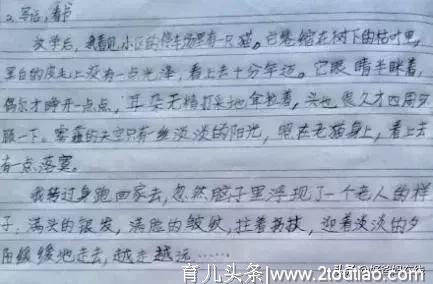 2、写话,看书
放学后,我看见小区的停车场里有一只猫。它蜷缩在树下的枯叶里,
黑白的皮毛上没有一点光泽,看上去十分年迈。它眼睛半眯着,
偶尔才睁开一点点,耳朵无精打采地耷拉着,头也很久才四周夕
顾一下。雾霾的天空只有一丝淡淡的阳光,照在老猫身上,看上去
有一点落寞。
我转过身跑回家去,忽然脑子里浮现了一个老人的样
子:满头的银发,满脸的皱纹,拄着拐杖,迎着淡淡的夕
阳缓缓地走去,越走越远……
育儿头条(www.2toutiao.com)